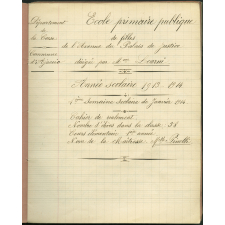 Département
de
la Corse
Arrondissement
d'Ajaccio
Ecole primaire publique
de filles
de l'Avenue du Palais de justice
dirigée par Mme
Année scolaire 1913 - 1914
Semaine scolaire de Janvier 1914
Cahier de roulement
Nombre d'élèves dans la classe 38
Cours élémentaire 1ère année
Nom de la Maîtresse Mlle